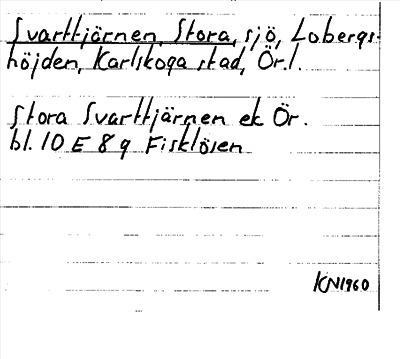 Svarttjärnen, Stora, sjö, Lobergs-
höjden, Karlskoga stad, Ör.l.
Stora Svarttjärnen ek Ör.
bl. 10 E 8 g Fisklösen
KN1960